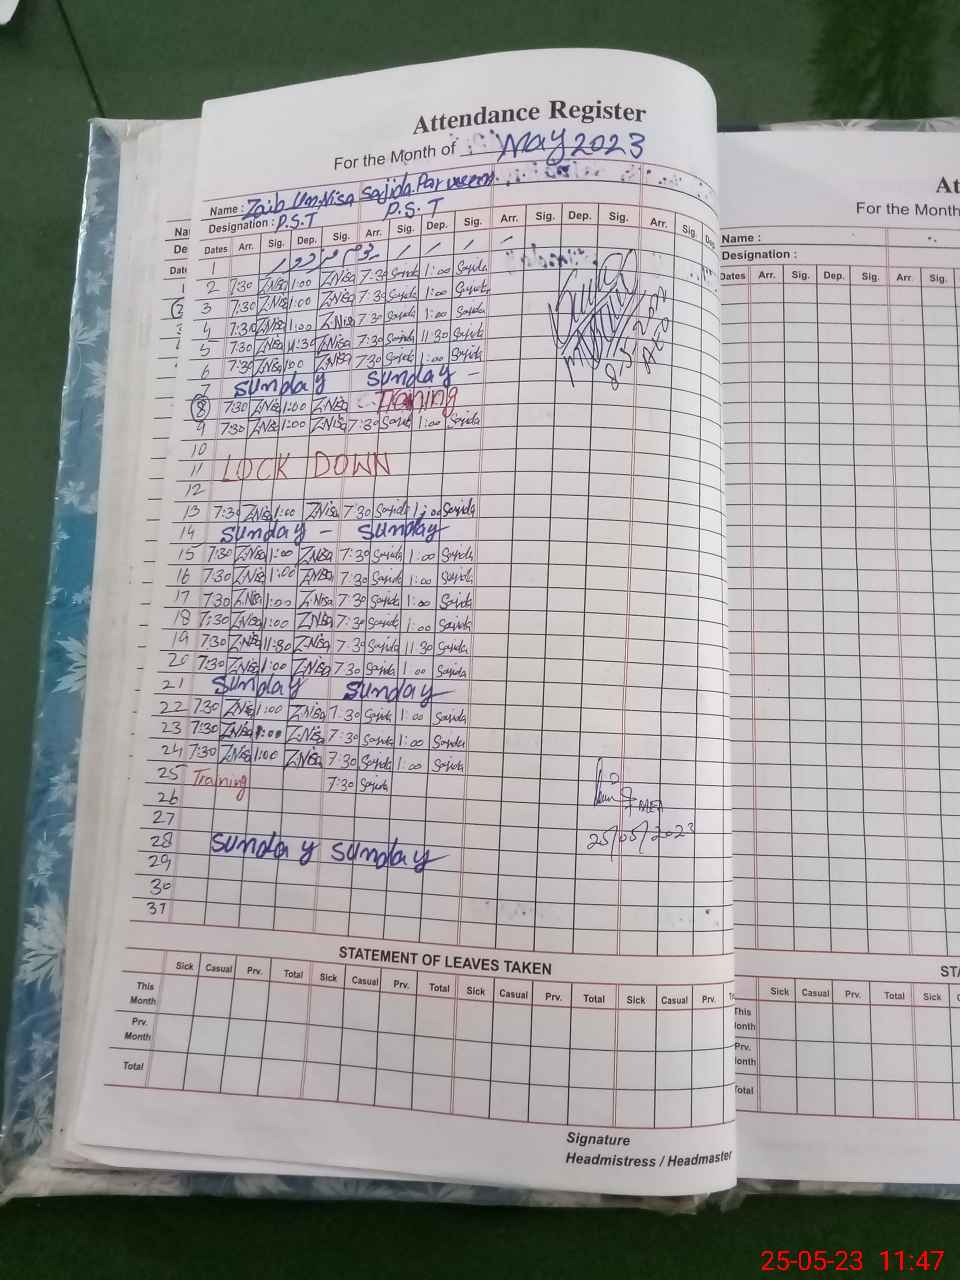 Attendance Register
For the Month of May 2023
Name : Zaib Un Nisa Sajida Parveen
Designation : P.S.T P.S.T
Dates Arr. Sig. Dep. Sig. Arr. Sig. Dep. Sig. Arr. Sig. Dep. Sig. Arr. Sig.
1
2 7:30 Z.Nisa 1:00 Z.Nisa 7:30 Sajida 1:00 Sajida
3 7:30 Z.Nisa 1:00 Z.Nisa 7:30 Sajida 1:00 Sajida
4 7:30 Z.Nisa 1:00 Z.Nisa 7:30 Sajida 1:00 Sajida
5 7:30 Z.Nisa 11:30 Z.Nisa 7:30 Sajida 11:30 Sajida
6 7:30 Z.Nisa 1:00 Z.Nisa 7:30 Sajida 1:00 Sajida
7 Sunday Sunday -
8 7:30 Z.Nisa 1:00 Z.Nisa Training
9 7:30 Z.Nisa 1:00 Z.Nisa 7:30 Sajida 1:00 Sajida
10
11 LOCK DOWN
12
13 7:30 Z.Nisa 1:00 Z.Nisa 7:30 Sajida 1:00 Sajida
14 Sunday - Sunday
15 7:30 Z.Nisa 1:00 Z.Nisa 7:30 Sajida 1:00 Sajida
16 7:30 Z.Nisa 1:00 Z.Nisa 7:30 Sajida 1:00 Sajida
17 7:30 Z.Nisa 1:00 Z.Nisa 7:30 Sajida 1:00 Sajida
18 7:30 Z.Nisa 1:00 Z.Nisa 7:30 Sajida 1:00 Sajida
19 7:30 Z.Nisa 11:30 Z.Nisa 7:30 Sajida 11:30 Sajida
20 7:30 Z.Nisa 1:00 Z.Nisa 7:30 Sajida 1:00 Sajida
21 Sunday Sunday
22 7:30 Z.Nisa 1:00 Z.Nisa 7:30 Sajida 1:00 Sajida
23 7:30 Z.Nisa 1:00 Z.Nisa 7:30 Sajida 1:00 Sajida
24 7:30 Z.Nisa 1:00 Z.Nisa 7:30 Sajida 1:00 Sajida
25 Training 7:30 Sajida
26
27
28 Sunday Sunday
29
30
31
MEA
25/05/2023
STATEMENT OF LEAVES TAKEN
Sick Casual Prv. Total Sick Casual Prv. Total Sick Casual Prv. Total Sick Casual Prv.
This Month
Prv. Month
Total
Signature
Headmistress / Headmaster
For the Month
Name :
Designation :
Dates Arr. Sig. Dep. Sig. Arr. Sig.
Sick Casual Prv. Total Sick
Total
25-05-23 11:47